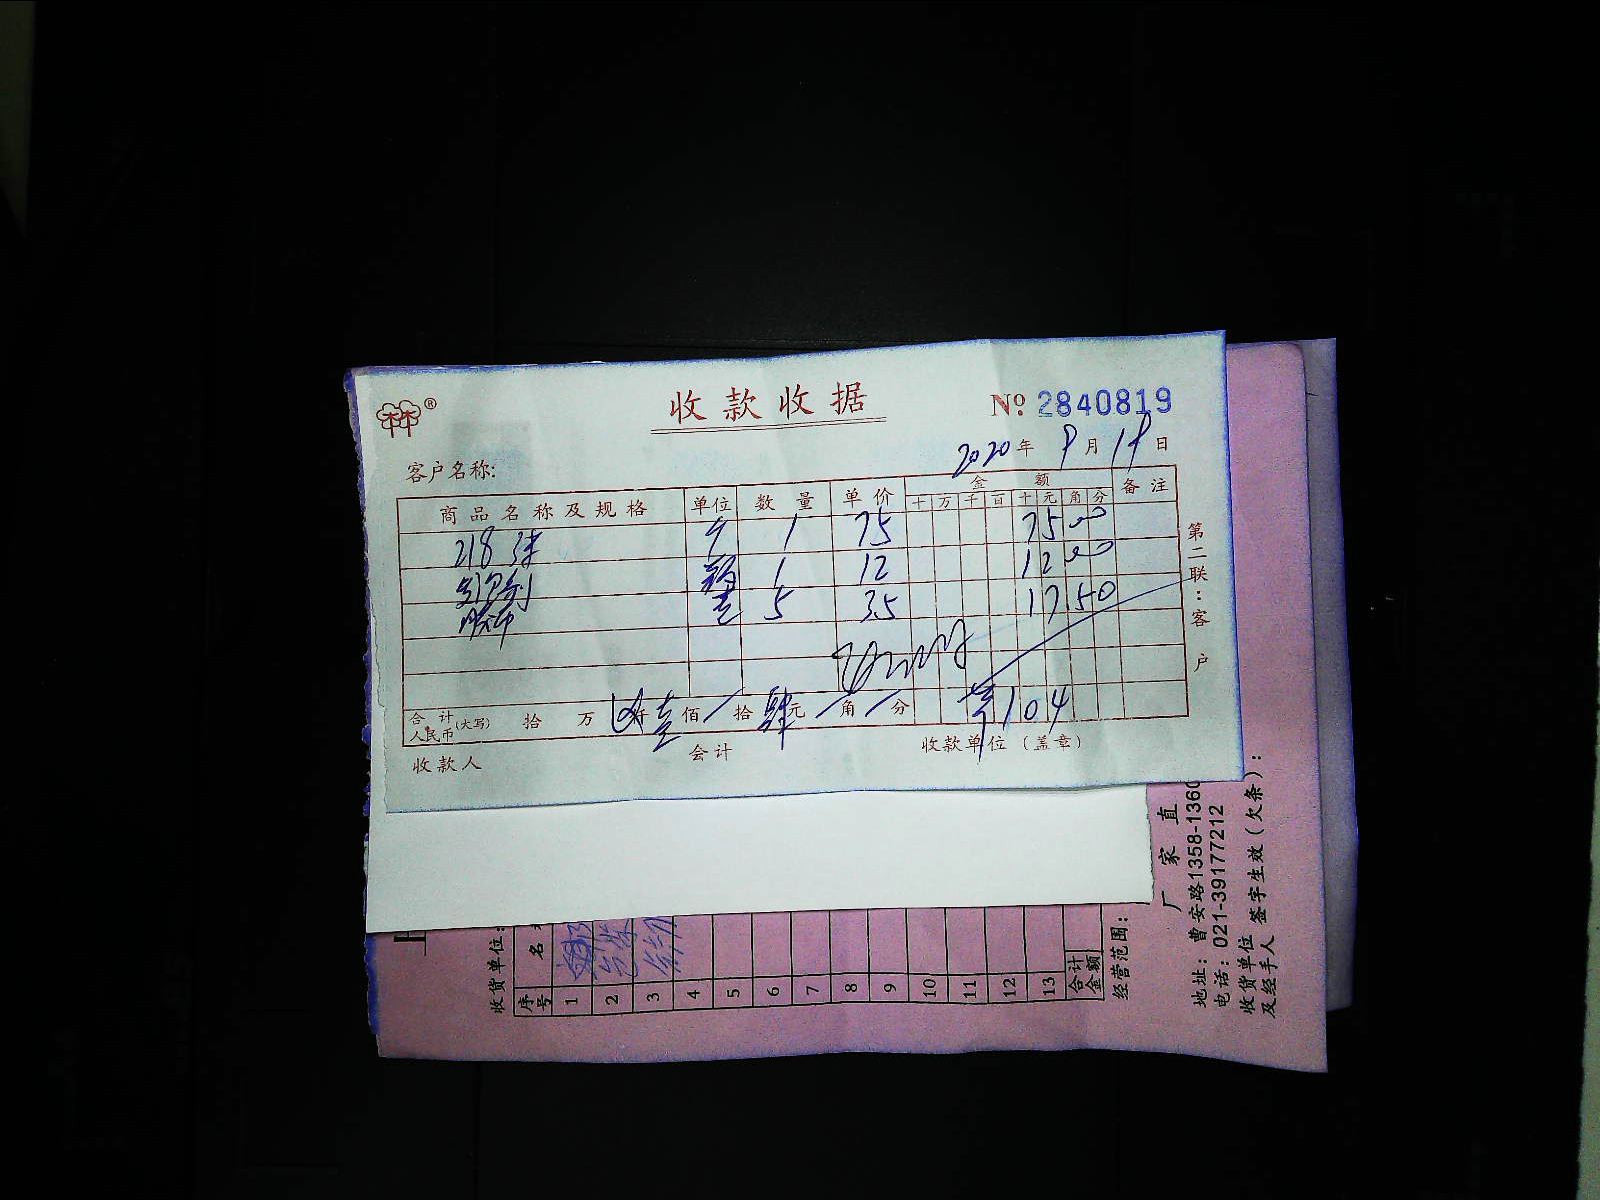 ®
收款收据
№ 2840819
客户名称:
2020年 9月 19日
商品名称及规格 单位 数量 单价 金额 备注
十 万 千 百 十 元 角 分
218 个 1 75 75 00
1 12 12 00
胶布 5 3.5 17 50
合计 人民币 (大写) 拾 万 仟 壹 佰 / 拾 肆 元 / 角 / 分 104
收款人 会计 收款单位(盖章)
第二联:客户
收货单位:
序号 名
1
2
3
4
5
6
7
8
9
10
11
12
13
合计金额
经营范围:
厂家直
地址: 曹安路1358-1360
电话: 021-39177212
收货单位及经手人 签字生效(欠条):